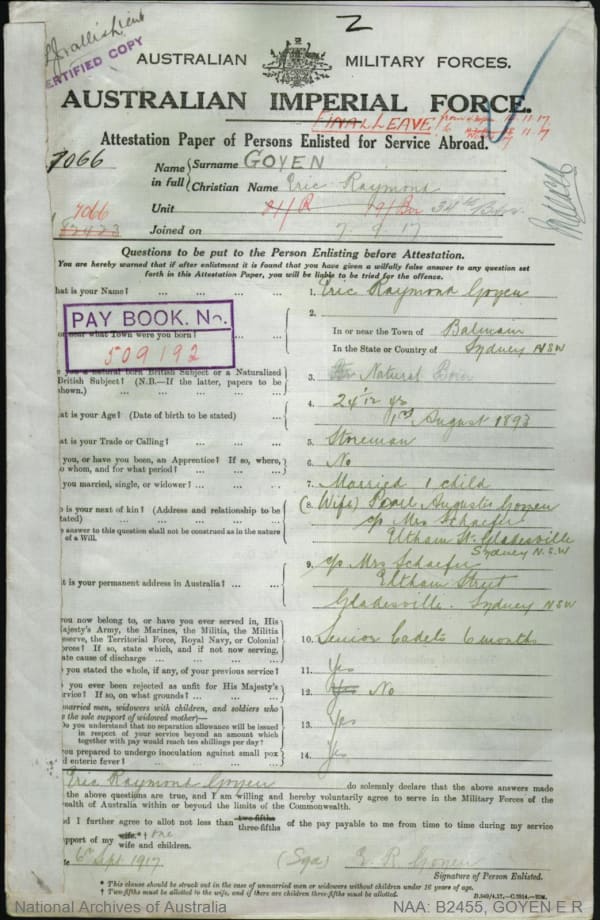 Z
CERTIFIED COPY
AUSTRALIAN MILITARY FORCES.
AUSTRALIAN IMPERIAL FORCE.
FINAL LEAVE
Attestation Paper of Persons Enlisted for Service Abroad.
7066
Name in full
Surname GOYEN
Christian Name Eric Raymond
Unit 21/R 19/Bn 34th Batn.
7066
Joined on 7 . 9 . 17
Questions to be put to the Person Enlisting before Attestation.
You are hereby warned that if after enlistment it is found that you have given a wilfully false answer to any question set
forth in this Attestation Paper, you will be liable to be tried for the offence.
hat is your Name? ... ... ... ... 1. Eric Raymond Goyen
PAY BOOK. No.
509192
2.
or near what Town were you born?
In or near the Town of Balmain
In the State or Country of Sydney NSW
e you a natural born British Subject or a Naturalized
British Subject? (N.B.—If the latter, papers to be
shown.) ... ... ... ...
3. Natural Born
at is your Age? (Date of birth to be stated) ...
4. 24 1/12 yrs
1st August 1893
at is your Trade or Calling? ... ... ... 5. Storeman
you, or have you been, an Apprentice? If so, where,
o whom, and for what period? ... ... ...
6. No
you married, single, or widower? ... ... ... 7. Married 1 child
o is your next of kin? (Address and relationship to be
tated) ... ... ...
e answer to this question shall not be construed as in the nature
of a Will.
8. (Wife) Pearl Augusta Goyen
c/o Mrs Schaefer
Eltham St. Gladesville
Sydney N.S.W
at is your permanent address in Australia? ...
9. c/o Mrs Schaefer
Eltham Street
Gladesville. Sydney NSW
you now belong to, or have you ever served in, His
ajesty's Army, the Marines, the Militia, the Militia
eserve, the Territorial Force, Royal Navy, or Colonial
orces? If so, state which, and if not now serving,
ate cause of discharge ... ... ... ...
10. Senior Cadets 6 months
you stated the whole, if any, of your previous service? 11. Yes
you ever been rejected as unfit for His Majesty's
rvice? If so, on what grounds? ... ... ...
12. Yes No
married men, widowers with children, and soldiers who
e the sole support of widowed mother)—
Do you understand that no separation allowance will be issued
in respect of your service beyond an amount which
together with pay would reach ten shillings per day?
13. Yes
you prepared to undergo inoculation against small pox
d enteric fever? ... ... ... ...
14. Yes
Eric Raymond Goyen do solemnly declare that the above answers made
the above questions are true, and I am willing and hereby voluntarily agree to serve in the Military Forces of the
wealth of Australia within or beyond the limits of the Commonwealth.
nd I further agree to allot not less than two-fifths three-fifths of the pay payable to me from time to time during my service
upport of my wife* one
wife and children.
te 6th Sept 1917 (Sgd) E. R. Goyen
Signature of Person Enlisted.
* This clause should be struck out in the case of unmarried men or widowers without children under 16 years of age.
† Two-fifths must be allotted to the wife, and if there are children three-fifths must be allotted.
National Archives of Australia NAA: B2455, GOYEN E R